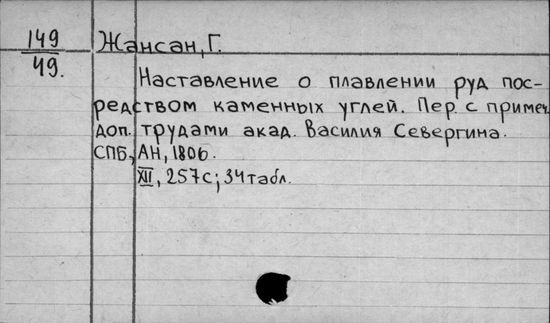 149
49.
Жансан, Г.
Наставление о плавлении руд пос-
редством каменных углей. Пер. с примеч.
доп. трудами акад. Василия Севергина.
СПБ, АН, 1806.
XII, 257с; 34 табл.